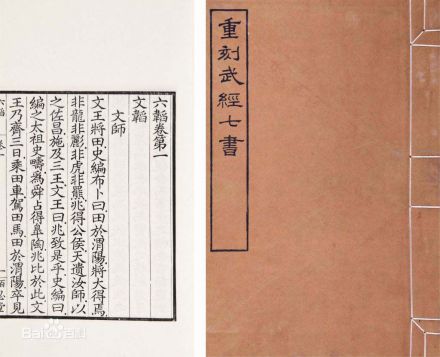 重刻武經七書
六韜卷第一
文韜
文師
文王將田史編布卜曰田於渭陽將大得焉
非龍非彲非虎非羆兆得公侯天遺汝師以
之佐昌施及三王文王曰兆致是乎史編曰
編之太祖史疇爲舜占得皐陶兆比於此文
王乃齊三日乘田車駕田馬田於渭陽卒見
六韜 卷一
Bai百科